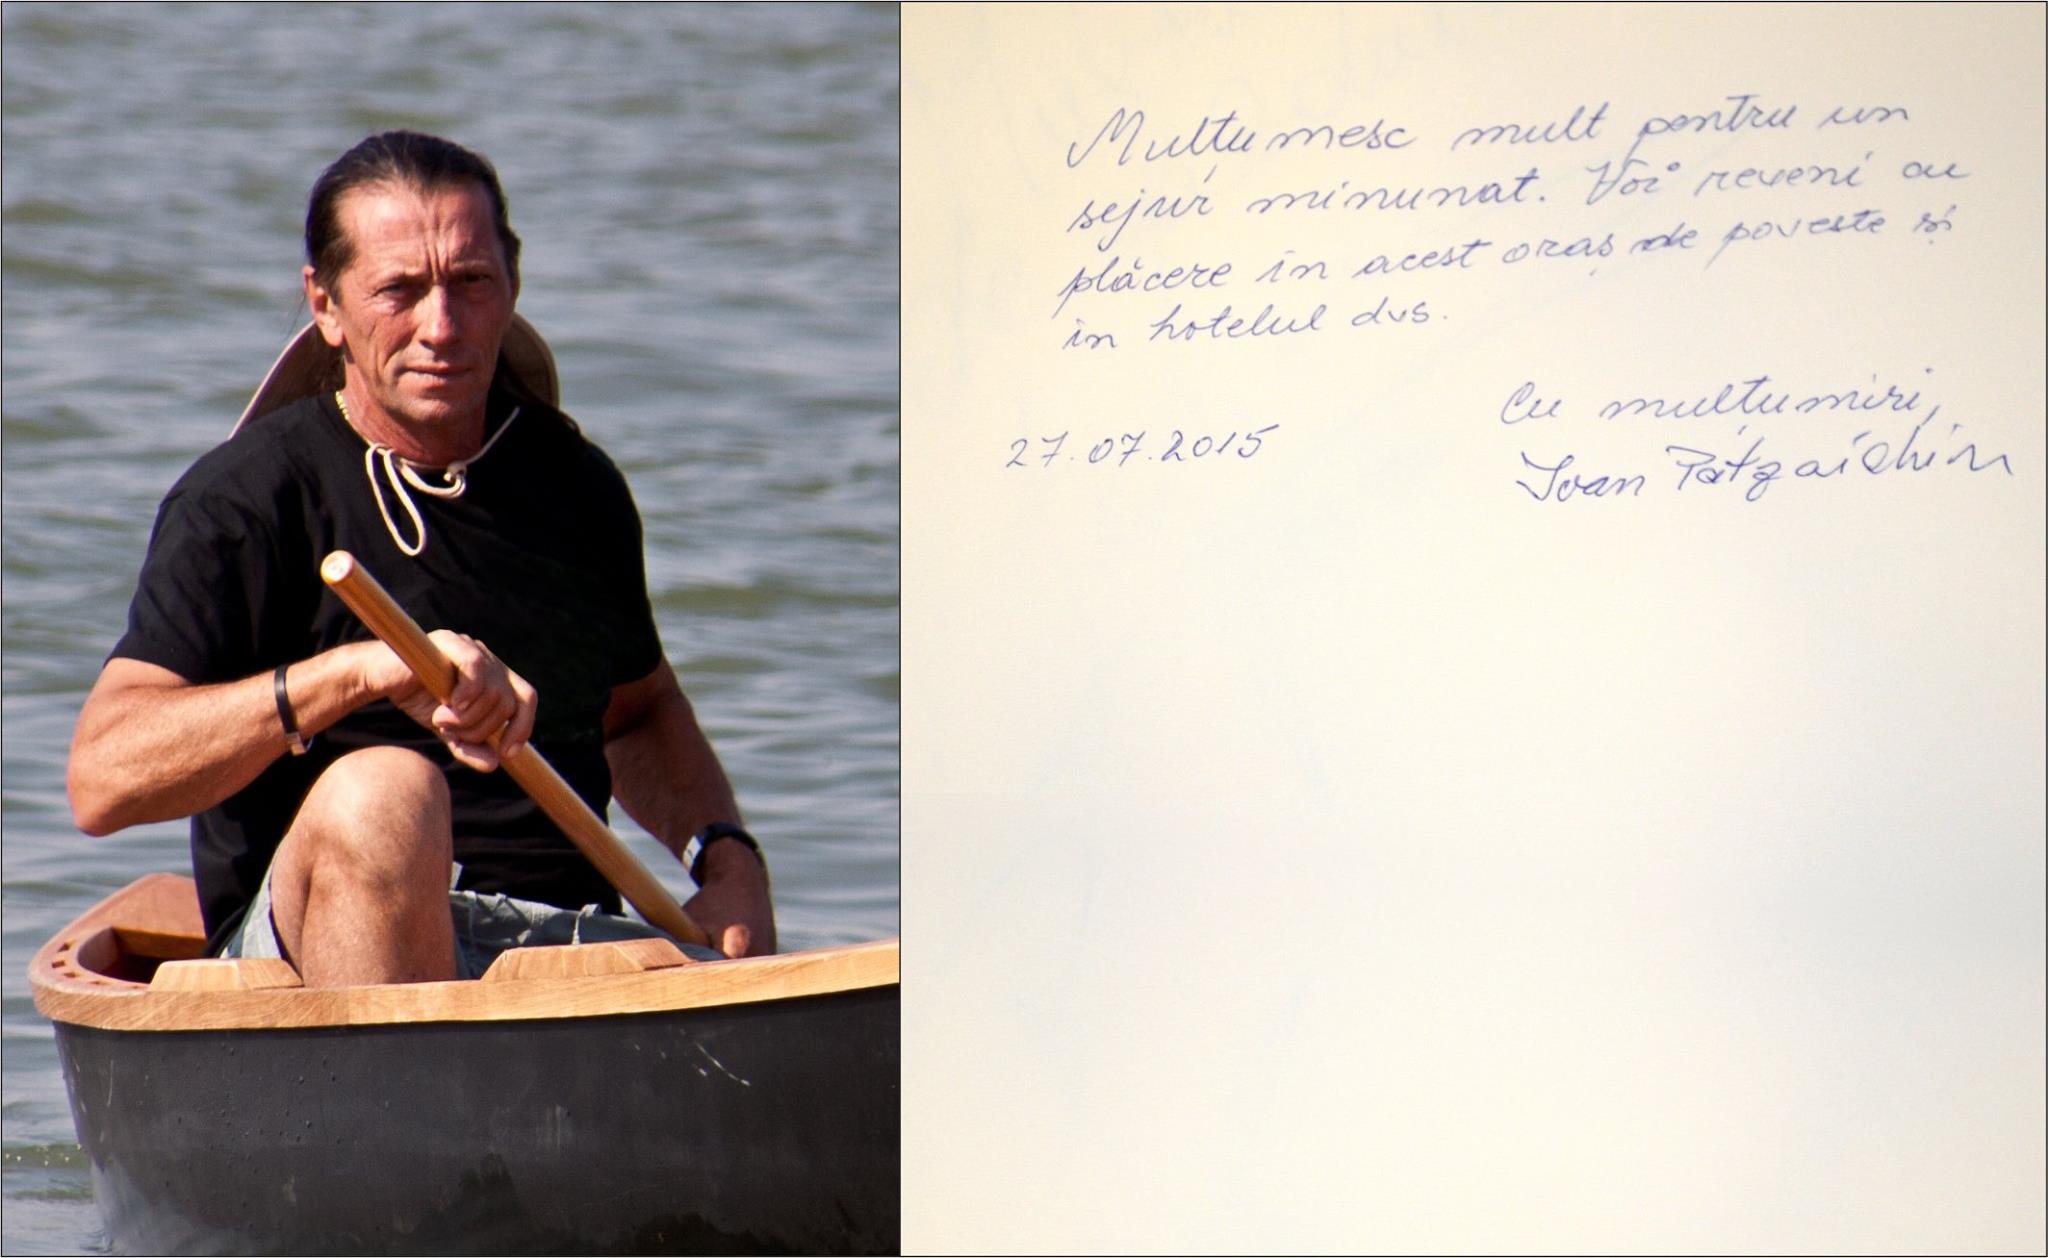 Mulțumesc mult pentru un
sejur minunat. Voi reveni cu
plăcere în acest oraș de poveste și
în hotelul dvs.
Cu mulțumiri,
27.07.2015
Ivan Patzaichin